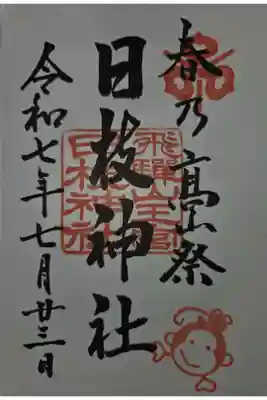 春乃高山祭
日枝神社
令和七年七月廿三日
飛騨一宮
日枝神社